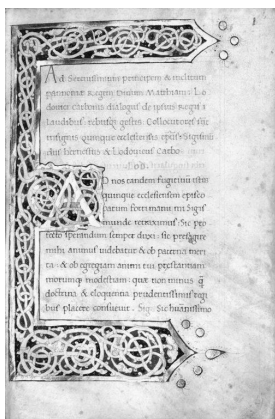 Ad Serenissimum principem & inclitum
pannoniae Regem Divum Matthiam Lo
dovici Carbonis dialogus de ipsius Regis
laudibus rebusque gestis. Collocutores sunt
insignis quinque ecclesiensis epus Sigismũ
dus hernestus & Lodovicus Carbo
AD nos tandem fugitivũ istũ
quinque ecclesiensem episco
patum fortunatum mi Sigis
munde retraximus: Sic pro
fecto sperandum semper duxi: sic presagire
mihi animus videbatur & ob paterna meri
ta & ob egregiam animi tui prestantiam
morumque modestiam: quae non minus q̃
doctrina & eloquentia prudentissimis regi
bus placere consuevit. Sig. Sic humanissimo